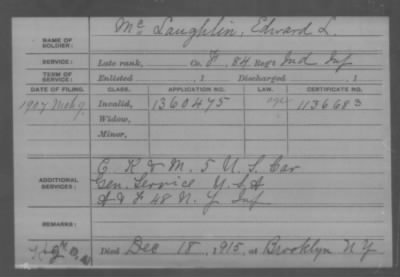 NAME OF SOLDIER: Mc Laughlin, Edward L.
SERVICE: Late rank, Co. F, 84 Reg't Ind Inf
TERM OF SERVICE: Enlisted , 1 Discharged , 1
DATE OF FILING. CLASS. APPLICATION NO. LAW. CERTIFICATE NO.
1907 Mch 9 Invalid, 1360475 1136683
Widow,
Minor,
ADDITIONAL SERVICES: C. K & M. 5 U. S. Cav
Gen. Service U. S. A
A & F 48 N. Y Inf
REMARKS:
Died Dec 18, 1915, at Brooklyn N Y